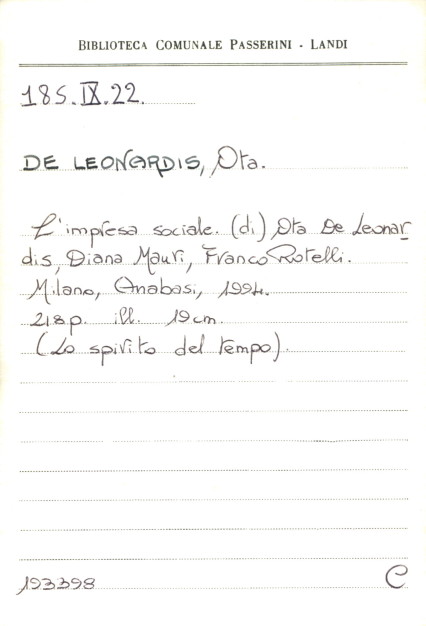 BIBLIOTECA COMUNALE PASSERINI - LANDI
185.IX.22.
DE LEONARDIS, Ota.
L'impresa sociale. (di) Ota De Leonar
dis, Diana Mauri, Franco Rotelli.
Milano, Anabasi, 1994.
218p. ill. 19cm.
(Lo spirito del tempo).
193398 C